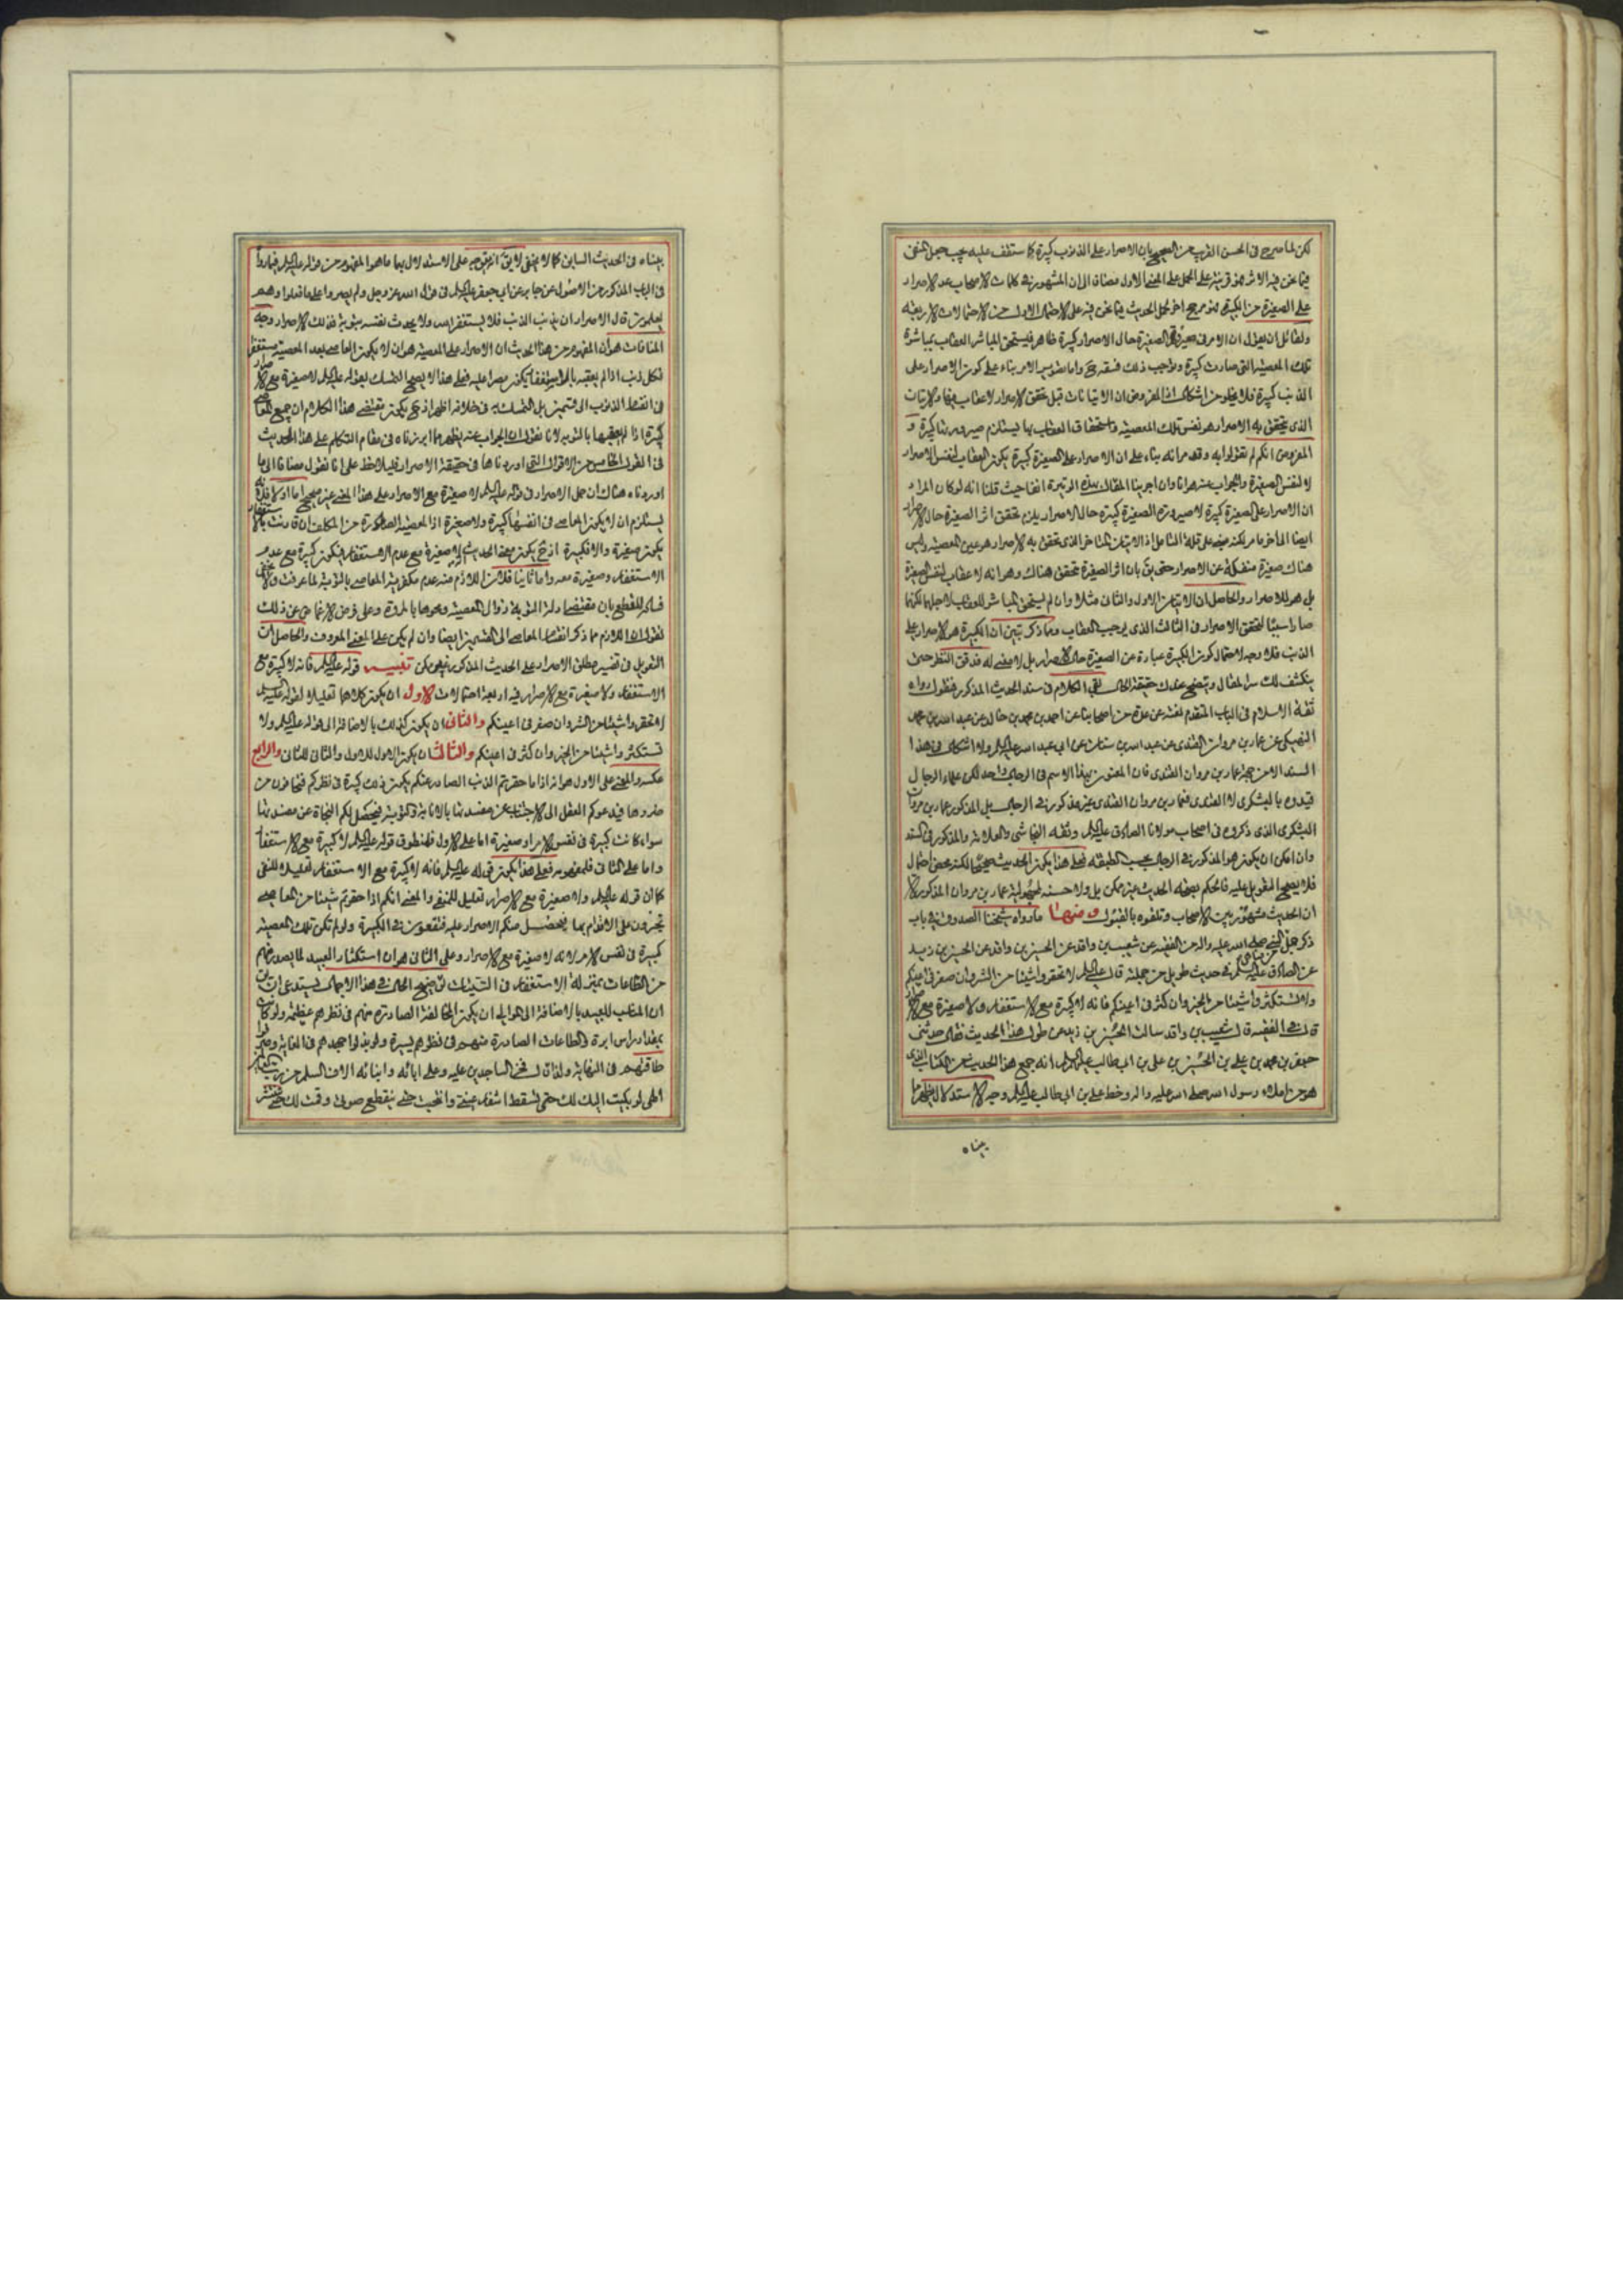 لكن لما صرح في الحسن القريب من الصحيح بان الاصرار على الذنوب كبيرة كما ستقف عليه يجب حمل النفي
فيما نحن فيه الاثر فهو قرينة على الحمل على المعنى الاول مضافا الى ان المشهور في كلمات الاصحاب عد الاصرار
على الصغيرة من الكبيرة فهو مرجح اخر لحمل الحديث فيما نحن فيه على الاحتمال الاول من الاحتمالات الاربعة
ولقائل ان يقول ان الامر في صيرورة الصغيرة حال الاصرار كبيرة ظاهر فيستحق المباشر العقاب بمباشرة
تلك المعصية التي صارت كبيرة ويوجب ذلك فسقه ح واما تفويت الامر بناء على كون الاصرار على
الذنب كبيرة فلا يخلو من اشكال اذ المفروض ان الاتيانات قبل تحقق الاصرار لا عقاب فيها والاتيان
الذي يتحقق به الاصرار هو نفس تلك المعصية واستحقاق العقاب بها يستلزم صيرورتها كبيرة و
المفروض انكم لم تقولوا به وقد مر انه بناء على ان الاصرار على الصغيرة كبيرة يكون العقاب لنفس الاصرار
لا لنفس الصغيرة والجواب عنه هو انا وان اجرينا المقال بهذه الوتيرة انفا حيث قلنا انه لو كان المراد
ان الاصرار على الصغيرة كبيرة لا صيرورة الصغيرة كبيرة حال الاصرار يلزم تحقق اثر الصغيرة حال الاصرار
ايضا الى اخر ما مر لكنه مبني على قلة التامل اذ الاتيان المتاخر الذي تحقق به الاصرار هو عين المعصية وليس
هناك صغيرة منفكة عن الاصرار حتى يق بان اثر الصغيرة تحقق هناك وهو انه لا عقاب لنفس الصغيرة
بل هو للاصرار والحاصل ان الاتيان الاول والثاني مثلا وان لم يستحق المباشر للعقاب لاجلهما لكنهما
صارا سببا لتحقق الاصرار في الثالث الذي يوجب العقاب ومما ذكر تبين ان الكبيرة هو الاصرار على
الذنب فلا وجه لاحتمال كون الكبيرة عبارة عن الصغيرة حال الاصرار بل لا معنى له فدقق النظر حتى
ينكشف لك سر المقال ويتضح عندك حقيقة الحال بقي الكلام في سند الحديث المذكور فنقول رواه
ثقة الاسلام في الباب المتقدم نفسه عن عدة من اصحابنا عن احمد بن محمد بن خالد عن عبد الله بن محمد
النهيكي عن عمار بن مروان القندي عن عبد الله بن سنان عن ابي عبد الله عليه السلام ولا اشكال في هذا
السند الا من جهة عمار بن مروان القندي فان المعنون بهذا الاسم في الرجال واحد لكن علماء الرجال
قيدوه باليشكري لا القندي فعمار بن مروان القندي غير مذكور في الرجال بل المذكور عمار بن مروان
اليشكري الذي ذكروه في اصحاب مولانا الصادق عليه السلام وثقه النجاشي والعلامة والمذكور في السند
وان امكن ان يكون هو المذكور في الرجال بحسب الطبقة فعلى هذا يكون الحديث صحيحا لكنه محض احتمال
فلا يصح التعويل عليه فالحكم بصحة الحديث غير ممكن بل ولا حسنه لمجهولية عمار بن مروان المذكور الا
ان الحديث مشهور بين الاصحاب وتلقوه بالقبول ومنها ما رواه شيخنا الصدوق في باب
ذكر جمل النبي صلى الله عليه واله من الفقيه عن شعيب بن واقد عن الحسين بن زيد
عن الصادق عليه السلام في حديث طويل من جملته قال عليه السلام لا تحقروا شيئا من الشر وان صغر في اعينكم
ولا تستكثروا شيئا من الخير وان كثر في اعينكم فانه لا كبيرة مع الاستغفار ولا صغيرة مع الاصرار
قال في الفقيه قال شعيب بن واقد سالت الحسين بن زيد عن طول هذا الحديث فقال حدثني
جعفر بن محمد بن علي بن الحسين بن علي بن ابي طالب عليهم السلام انه جمع هذا الحديث من الكتاب الذي
هو من املاء رسول الله صلى الله عليه واله وخط علي بن ابي طالب عليه السلام وجه الاستدلال يظهر مما
بيناه
بيناه في الحديث السابق كما لا يخفى لا يق انه يتوجه على الاستدلال بهما ما هو المفهوم من قوله عليه السلام فيما رواه
في الباب المذكور من الاصول عن جابر عن ابي جعفر عليه السلام في قول الله عز وجل ولم يصروا على ما فعلوا وهم
يعلمون قال الاصرار ان يذنب الذنب فلا يستغفر الله ولا يحدث نفسه بتوبة فذلك الاصرار وجه
المنافاة هو ان المفهوم من هذا الحديث ان الاصرار على المعصية هو ان لا يكون العاصي بعد المعصية مستغفرا
فكل ذنب اذا لم يعقبه بالاستغفار يكون مصرا عليه فعلى هذا لا يصح التمسك بقوله عليه السلام لا صغيرة مع الاصرار
في انقسام الذنوب الى قسمين بل التمسك به في خلافه اظهر اذ ح يكون مقتضى هذا الكلام ان جميع المعاصي
كبيرة اذا لم يعقبها بالتوبة لانا نقول ان الجواب عنه يظهر مما ابرزناه في مقام التكلم على هذا الحديث
في القول الخامس من الاقوال التي اوردناها في حقيقة الاصرار فليلاحظ على انا نقول مضافا الى ما
اوردناه هناك ان حمل الاصرار في قوله عليه السلام لا صغيرة مع الاصرار على هذا المعنى غير صحيح اما اولا فلانه
يستلزم ان لا يكون المعاصي في انفسها كبيرة ولا صغيرة اذ المعصية الصادرة من المكلف ان قارنت بالاستغفار
يكون صغيرة والا فكبيرة اذ ح يكون معنى الحديث انه لا صغيرة مع عدم الاستغفار فيكون كبيرة مع عدم
الاستغفار وصغيرة معه واما ثانيا فلان اللازم منه عدم مكفرية المعاصي بالتوبة لما عرفت ولا يخفى
فساده للقطع بان مقتضى ادلة التوبة زوال المعصية ومحوها بالمرة وعلى فرض الاغماض عن ذلك
نقول ان اللازم مما ذكر انقسام المعاصي الى القسمين ايضا وان لم يكن على المعنى المعروف والحاصل ان
التعويل في تفسير مطلق الاصرار على الحديث المذكور غير ممكن تنبيه قوله عليه السلام فانه لا كبيرة مع
الاستغفار ولا صغيرة مع الاصرار فيه اربعة احتمالات الاول ان يكون كلاهما تعليلا لقوله عليه السلام
لا تحقروا شيئا من الشر وان صغر في اعينكم والثاني ان يكون كذلك بالاضافة الى قوله عليه السلام ولا
تستكثروا شيئا من الخير وان كثر في اعينكم والثالث ان يكون الاول للاول والثاني للثاني والرابع
عكسه والمعنى على الاول هو انه اذا ما حقرتم الذنب الصادر عنكم يكون ذلك كبيرة في نظركم فتخافون من
ضررها فيدعوكم العقل الى الاجتناب عن مفسدتها بالانابة والتوبة فيحصل لكم النجاة عن مفسدتها
سواء كانت كبيرة في نفس الامر او صغيرة اما على الاول فلمنطوق قوله عليه السلام لا كبيرة مع الاستغفار
واما على الثاني فلمفهومه فعلى هذا يكون قوله عليه السلام فانه لا كبيرة مع الاستغفار تعليلا للنفي
كما ان قوله عليه السلام ولا صغيرة مع الاصرار تعليل للمنفي والمعنى انكم اذا حقرتم شيئا من المعاصي
تجرون على الاقدام بها فيحصل منكم الاصرار عليه فتقعون في الكبيرة ولو لم تكن تلك المعصية
كبيرة في نفس الامر لانه لا صغيرة مع الاصرار وعلى الثاني هو ان استكثار العبيد لما يصدر منهم
من الطاعات بمنزلة الاستغفار في السيئات توضيح الحال في هذا الاجمال يستدعي ان يق
ان المناسب للعبيد بالاضافة الى مواليه ان يكون المخالفة الصادرة منهم في نظرهم عظيمة ولو كان
بمقدار راس ابرة والطاعات الصادرة منهم في نظرهم يسيرة ولو بذلوا جهدهم في الغاية وصرفوا
طاقتهم في النهاية ولذا قال فخر الساجدين عليه وعلى ابائه وابنائه الاف السلام من رب العالمين
الهي لو بكيت اليك لك حتى تسقط اشفار عيني وانتحبت حتى ينقطع صوتي وقمت لك حتى تتنشر